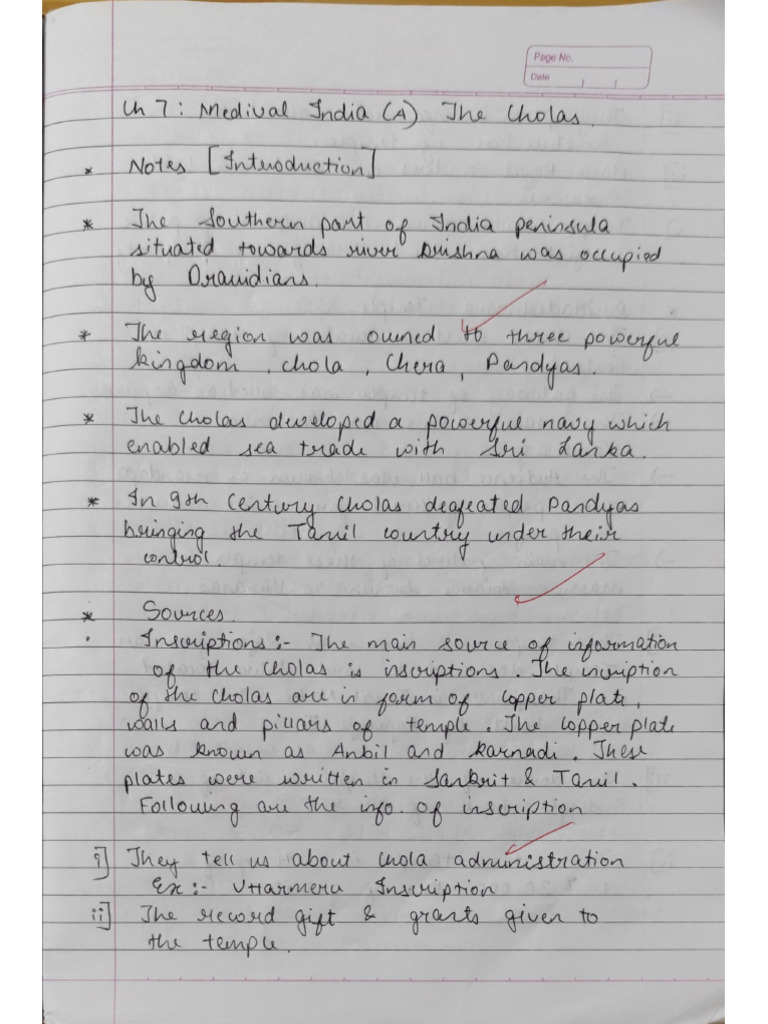 Page No.
Date
Ch 7: Medival India (A) The Cholas.
* Notes [Introduction]
* The Southern part of India peninsula
situated towards river Krishna was occupied
by Dravidians.
* The region was owned to three powerful
kingdom, Chola, Chera, Pandyas.
* The Cholas developed a powerful navy which
enabled sea trade with Sri Lanka.
* In 9th Century Cholas deafeated Pandyas
bringing the Tamil country under their
control.
* Sources.
· Inscriptions:- The main source of information
of the Cholas is inscriptions. The incription
of the Cholas are in form of copper plate,
walls and pillars of temple. The copper plate
was known as Anbil and Karnadi. These
plates were written in Sankrit & Tamil.
Following are the info. of inscription
i] They tell us about Chola administration
Ex:- Uttarmeru Inscription
ii] The record gift & grants given to
the temple.